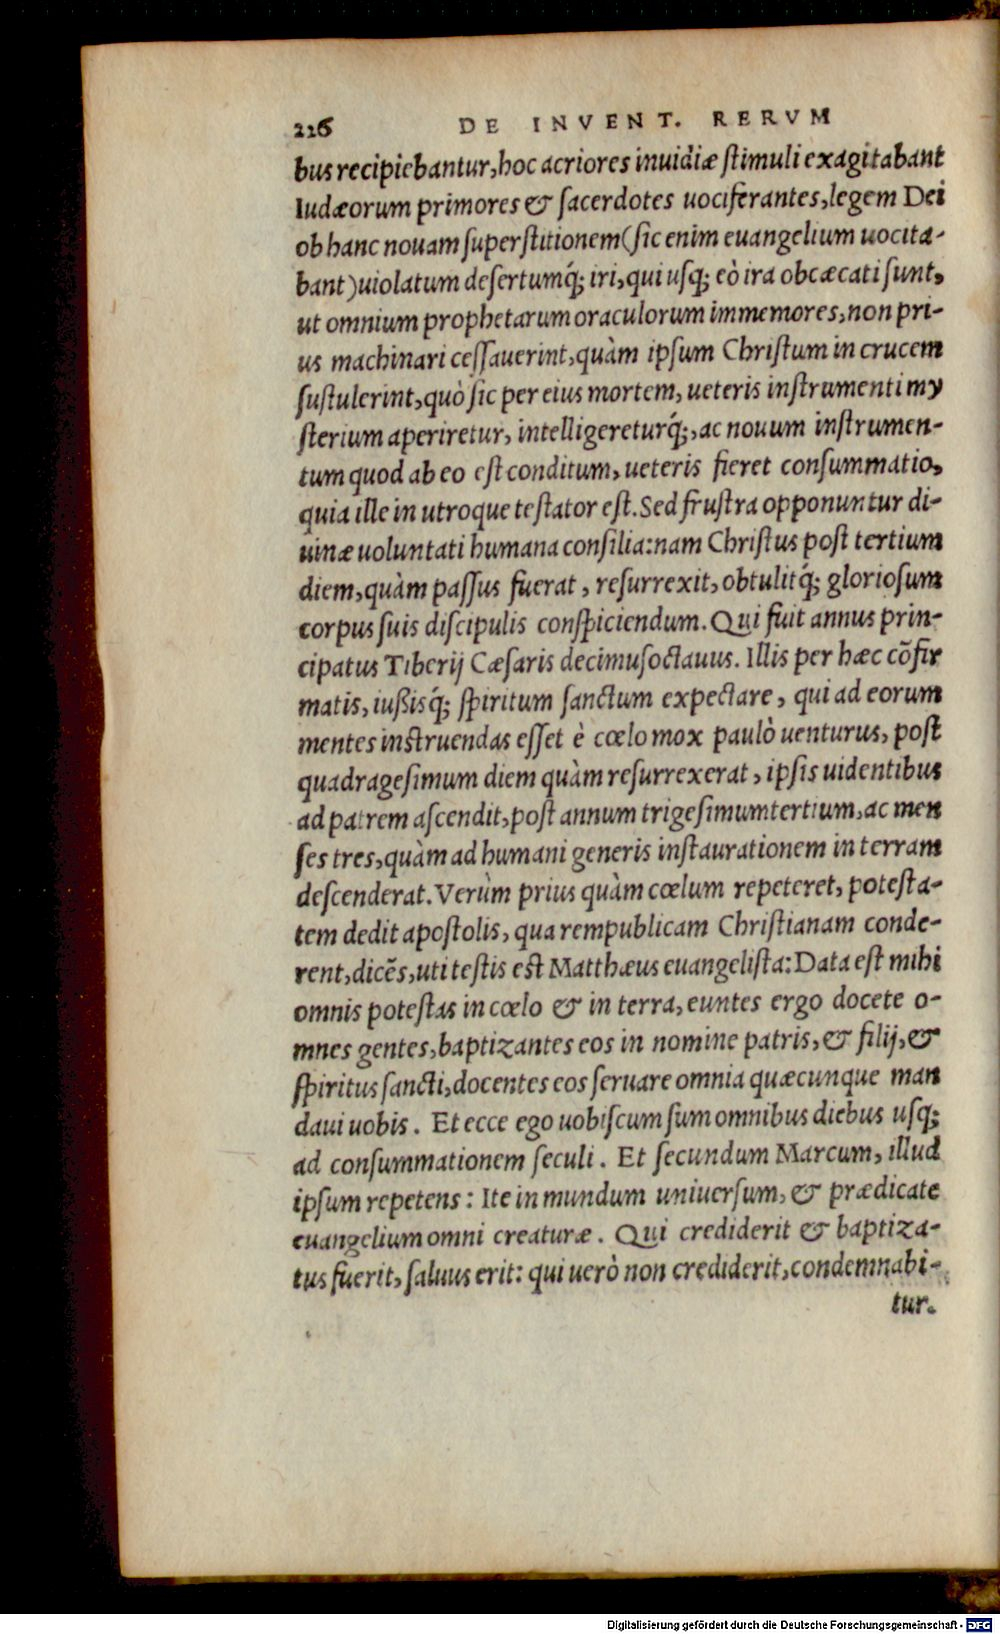 226 DE INVENT. RERVM
bus recipiebantur, hoc acriores inuidiæ ſtimuli exagitabant
Iudæorum primores & ſacerdotes uociferantes, legem Dei
ob hanc nouam ſuperſtitionem (ſic enim euangelium uocita-
bant) uiolatum deſertumq́; iri, qui uſq; eò ira obcæcati ſunt,
ut omnium prophetarum oraculorum immemores, non pri-
us machinari ceſſauerint, quàm ipſum Chriſtum in crucem
ſuſtulerint, quò ſic per eius mortem, ueteris inſtrumenti my
ſterium aperiretur, intelligereturq́;, ac nouum inſtrumen-
tum quod ab eo eſt conditum, ueteris fieret conſummatio,
quia ille in utroque teſtator eſt. Sed fruſtra opponuntur di-
uinæ uoluntati humana conſilia: nam Chriſtus poſt tertium
diem, quàm paſſus fuerat, reſurrexit, obtulitq́; glorioſum
corpus ſuis diſcipulis conſpiciendum. Qui fuit annus prin-
cipatus Tiberij Cæſaris decimusoctauus. Illis per hæc cõfir
matis, iuſsisq́; ſpiritum ſanctum expectare, qui ad eorum
mentes inſtruendas eſſet è cœlo mox paulò uenturus, poſt
quadrageſimum diem quàm reſurrexerat, ipſis uidentibus
ad patrem aſcendit, poſt annum trigeſimumtertium, ac men
ſes tres, quàm ad humani generis inſtaurationem in terram
deſcenderat. Verùm prius quàm cœlum repeteret, poteſta-
tem dedit apoſtolis, qua rempublicam Chriſtianam conde-
rent, dicẽs, uti teſtis eſt Matthæus euangeliſta: Data eſt mihi
omnis poteſtas in cœlo & in terra, euntes ergo docete o-
mnes gentes, baptizantes eos in nomine patris, & filij, &
ſpiritus ſancti, docentes eos ſeruare omnia quæcunque man
daui uobis. Et ecce ego uobiſcum ſum omnibus diebus uſq;
ad conſummationem ſeculi. Et ſecundum Marcum, illud
ipſum repetens: Ite in mundum uniuerſum, & prædicate
euangelium omni creaturæ. Qui crediderit & baptiza-
tus fuerit, ſaluus erit: qui uerò non crediderit, condemnabi-
tur.
Digitalisierung gefördert durch die Deutsche Forschungsgemeinschaft - DFG